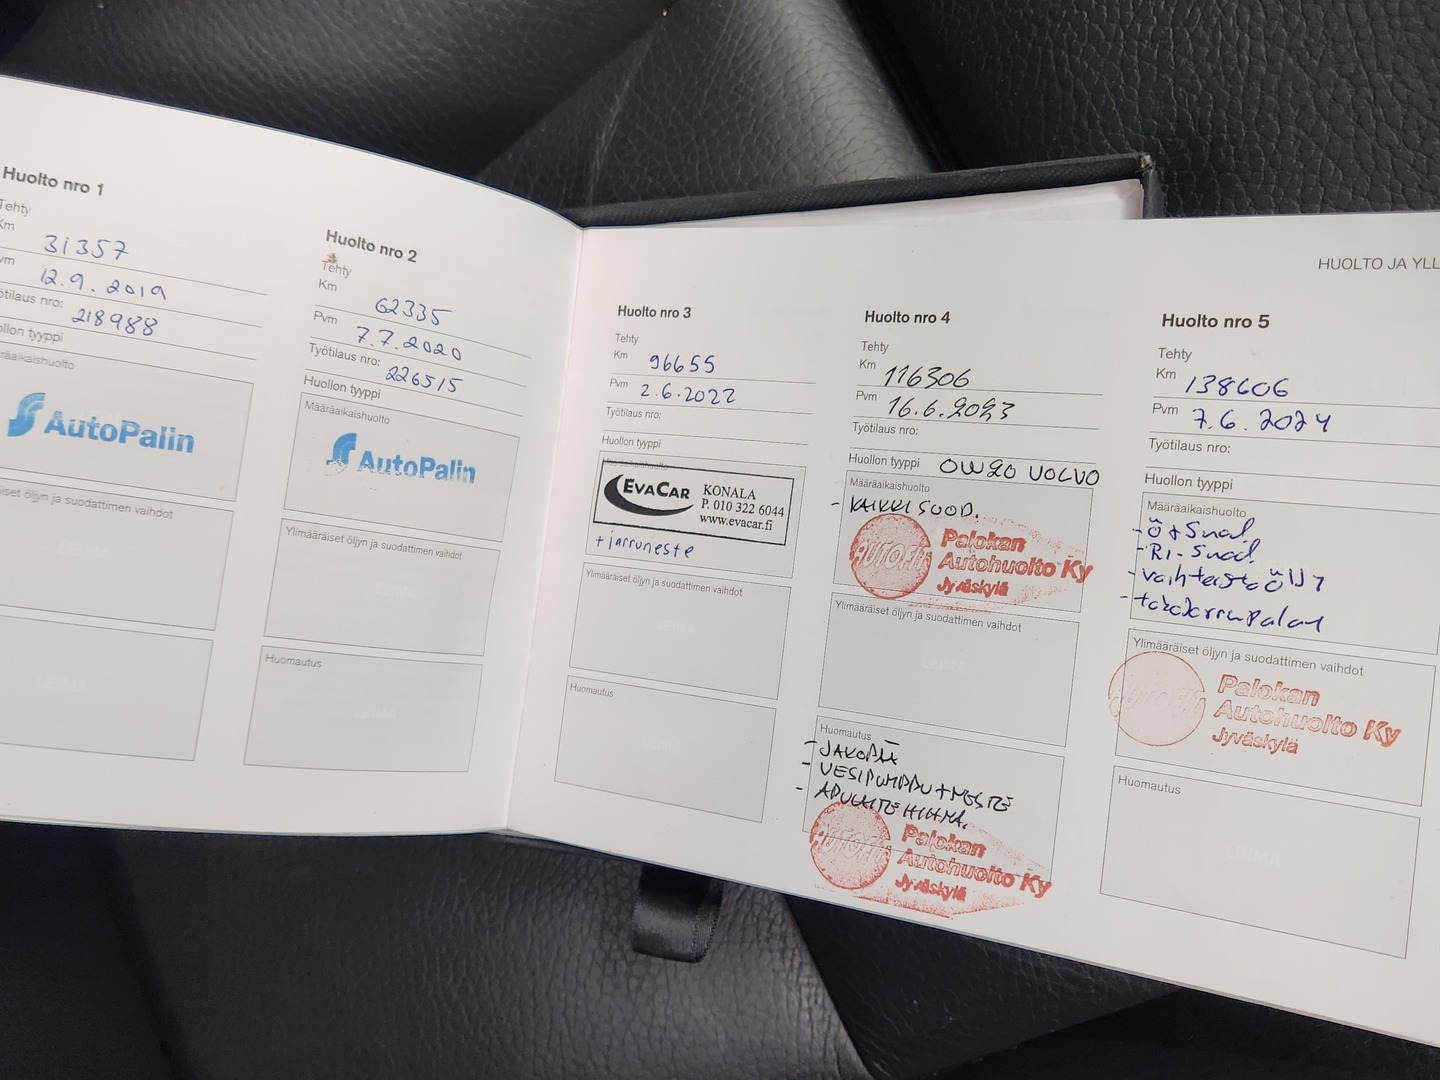 Huolto nro 1
Tehty
Km 31357
Pvm 12.9.2019
Työtilaus nro: 218988
Huollon tyyppi
Määräaikaishuolto
AutoPalin
öljyn ja suodattimen vaihdot
LEIMA
LEIMA
Huolto nro 2
Tehty
Km 62335
Pvm 7.7.2020
Työtilaus nro: 226515
Huollon tyyppi
Määräaikaishuolto
AutoPalin
Ylimääräiset öljyn ja suodattimen vaihdot
LEIMA
Huomautus
LEIMA
Huolto nro 3
Tehty
Km 96655
Pvm 2.6.2022
Työtilaus nro:
Huollon tyyppi
Määräaikaishuolto
EVACAR KONALA
P. 010 322 6044
www.evacar.fi
+ jarruneste
Ylimääräiset öljyn ja suodattimen vaihdot
LEIMA
Huomautus
LEIMA
Huolto nro 4
Tehty
Km 116306
Pvm 16.6.2023
Työtilaus nro:
Huollon tyyppi 0W20 VOLVO
Määräaikaishuolto
- KAIKKI SUOD.
AUTOFIT Palokan
Autohuolto Ky
Jyväskylä
Ylimääräiset öljyn ja suodattimen vaihdot
LEIMA
Huomautus
- JAKOPÄÄ
- VESIPUMPPU + NESTE
- APULAITEHIHNA.
AUTOFIT Palokan
Autohuolto Ky
Jyväskylä
HUOLTO JA YLL
Huolto nro 5
Tehty
Km 138606
Pvm 7.6.2024
Työtilaus nro:
Huollon tyyppi
Määräaikaishuolto
- Ö + Suod.
- RI - Suod.
- vaihteistoöljy
- takajarrupalat
Ylimääräiset öljyn ja suodattimen vaihdot
AUTOFIT Palokan
Autohuolto Ky
Jyväskylä
Huomautus
LEIMA